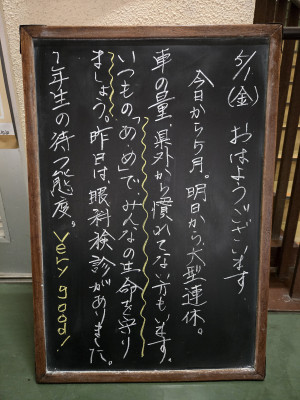 5/1(金) おはようございます
今日から5月。明日から大型連休。
車の量、県外から慣れてない方もいます。
いつもの「あ・め」で、みんなの生命を守り
ましょう。昨日は、眼科検診がありました。
1年生の待つ態度。very good!